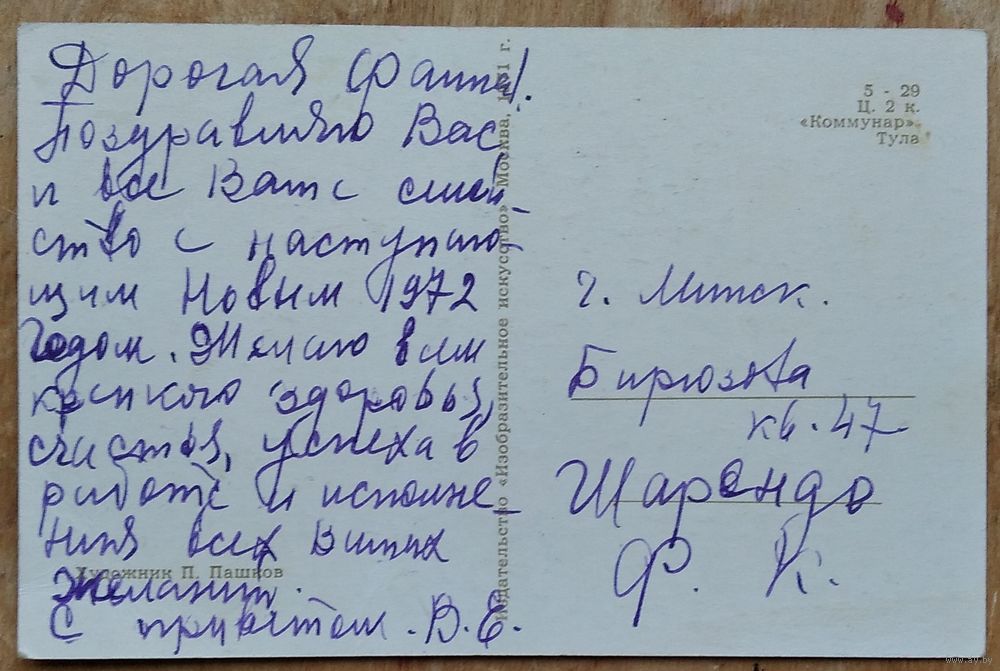 Дорогая Фаина!
Поздравляю Вас
и все Ваше семей-
ство с наступаю-
щим Новым 1972
Годом. Желаю всем
крепкого здоровья,
счастья, успеха в
работе и исполне-
ния всех Ваших
желаний.
С приветом. В.Е.
Художник П. Пашков
Издательство «Изобразительное искусство» Москва, 1971 г.
5 - 29
Ц. 2 к.
«Коммунар».
Тула
г. Минск.
Бирюзова
кв. 47
Шарендо
Ф. К.
www.ay.by